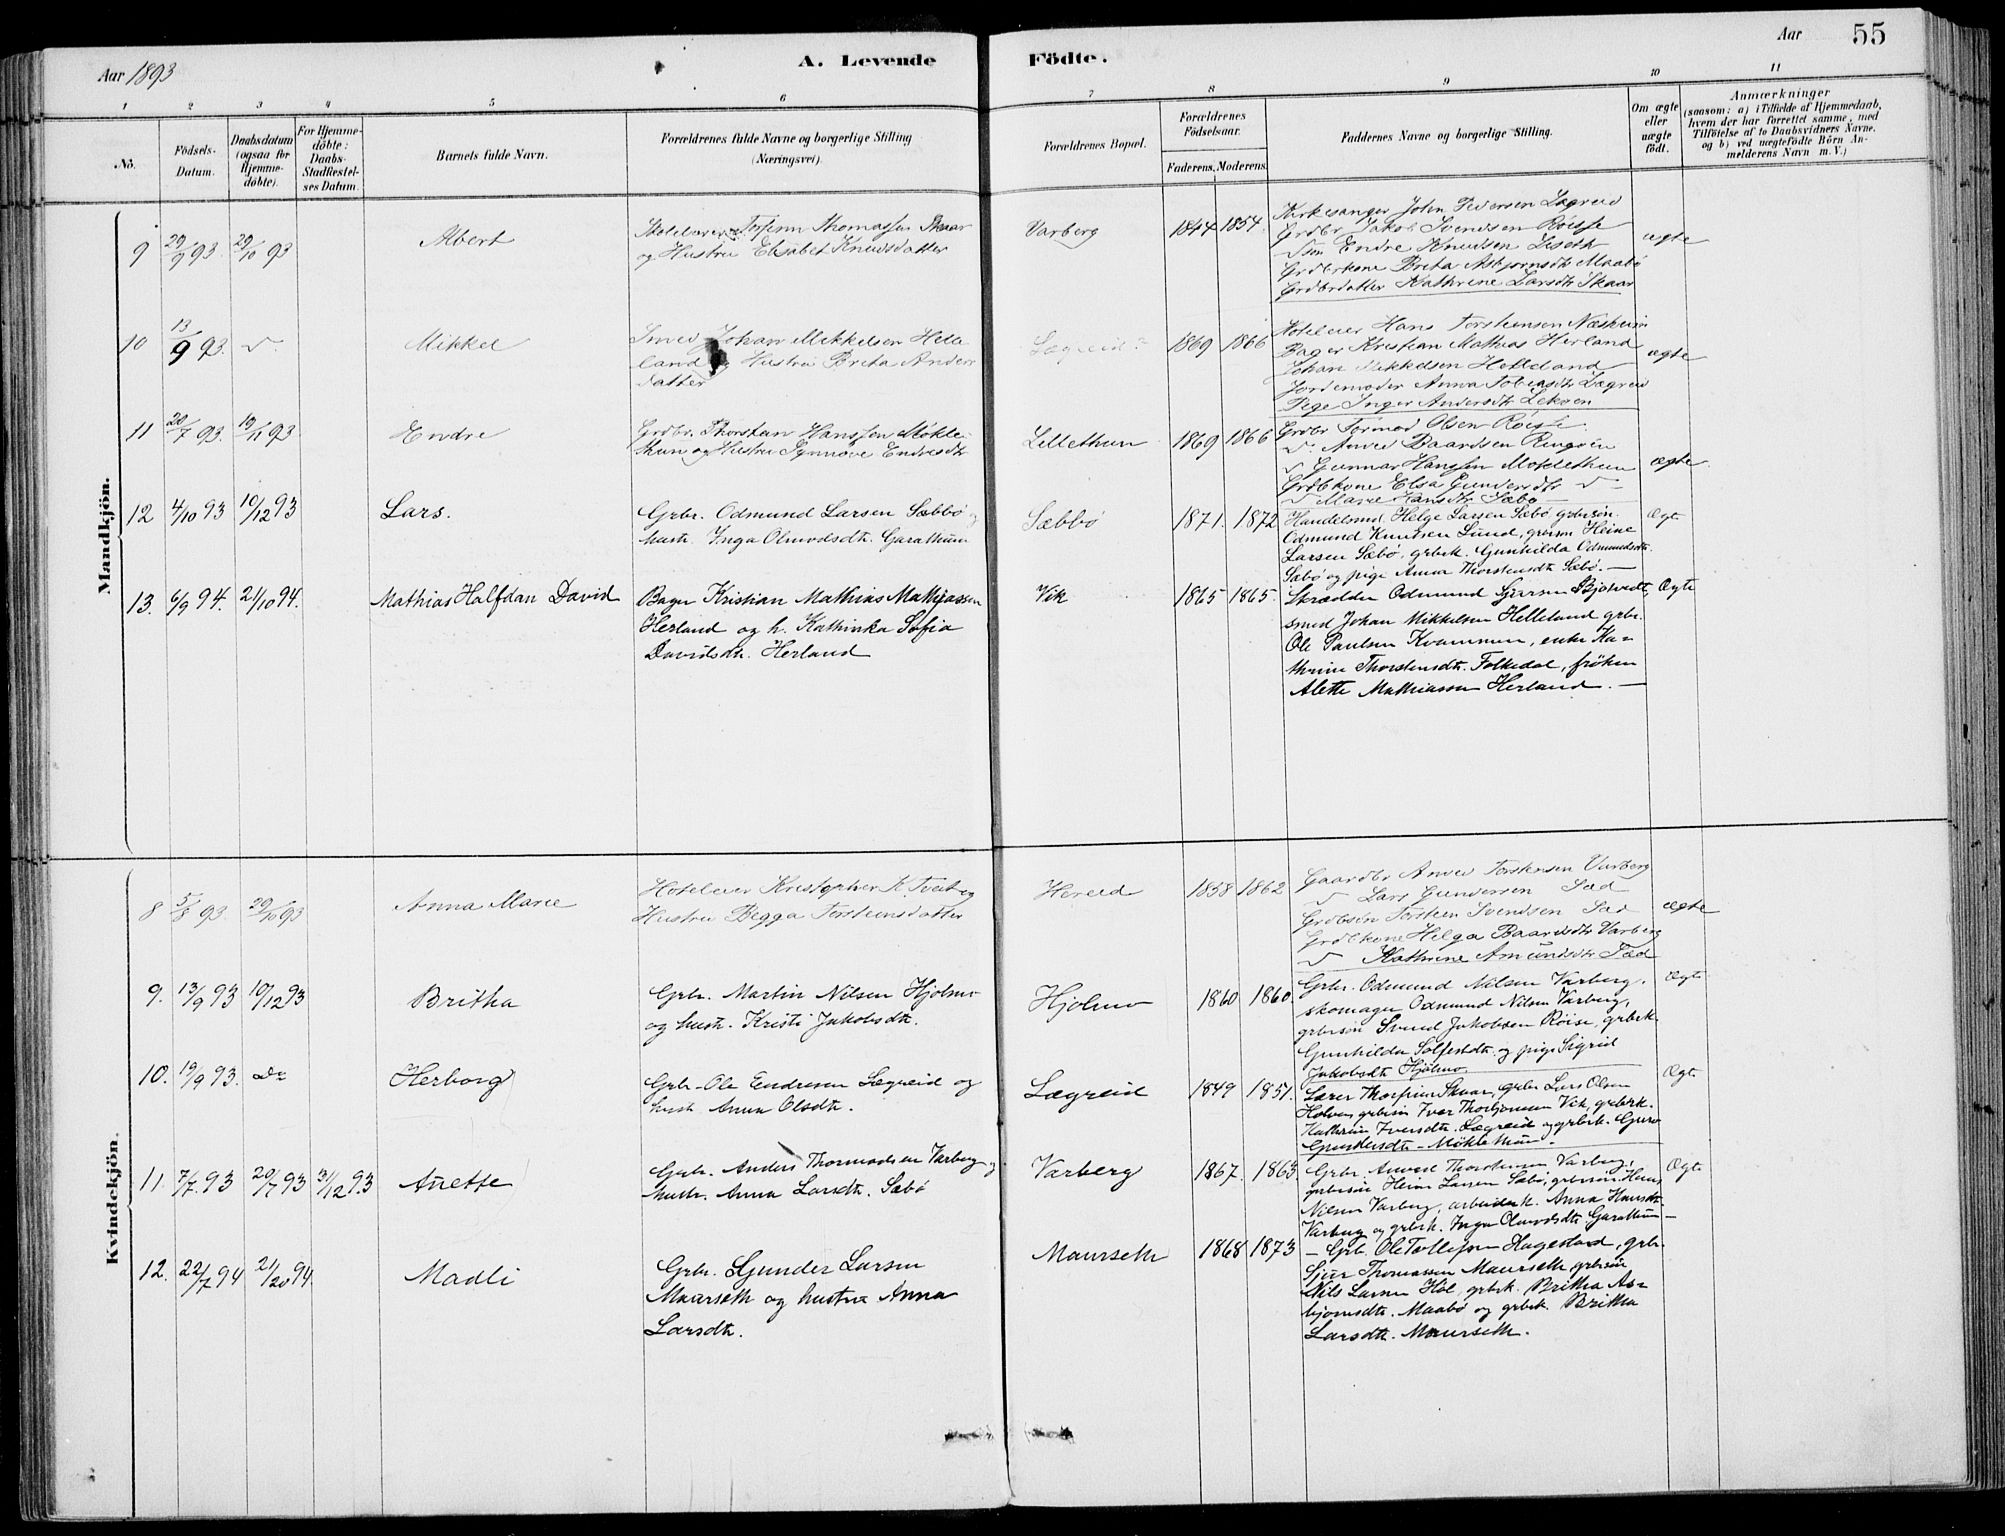 Aar 1893
A. Levende
Födte.
Aar
55
1 2 3 4 5 6 7 8 9 10 11
No.
Födsels-
Datum.
Daabsdatum
(ogsaa for
Hjemme-
döbte).
For Hjemme-
döbte:
Daabs-
Stadfæstel-
ses Datum.
Barnets fulde Navn.
Forældrenes fulde Navne og borgerlige Stilling
(Næringsvei).
Forældrenes Bopæl.
Forældrenes
Födselsaar.
Faderens. Moderens.
Faddernes Navne og borgerlige Stilling.
Om ægte
eller
uægte
födt.
Anmærkninger
(saasom: a) i Tilfælde af Hjemmedaab,
hvem der har forrettet samme, med
Tilföielse af to Daabsvidners Navne,
og b) ved uægtefödte Börn An-
melderens Navn m. V.)
Mandkjön.
9 29/9 93 29/10 93 Albert
Skolelærer Torfinn Thomassen Skaar
og Hustru Elisabet Knudsdatter
Varberg 1844 1854
Kirkesanger John Pedersen Lægreid
Grdbr Jakob Svendsen Röisse
Endre Knudsen Liseth
Grdbrkone Brita Asbjørnsdtr Maabø
Grdbrdatter Kathrine Larsdtr Skaar
ægte
10 13/9 93. Mikkel
Smed Johan Mikkelsen Helle-
land og Hustru Brita Anders
datter
Lægreid 1869 1866
Hoteleier Hans Torsteinsen Næsheim
Bager Kristian Mathias Herland
Johan Mikkelsen Helleland
Jordemoder Anna Tobiasdtr Lægreid
Pige Inger Andersdtr Lekven
ægte
11 20/7 93. 19/11 93 Endre
Grdbr. Thorstein Hanssen Møkle-
thun og Hustru Synnøve Endresdtr
Lillethun 1869 1866
Grdbr Tormod Olsen Röisse
Anved Baardsen Ringøen
Gunnar Hanssen Moklethun
Grdbkone Elsa Gundersdtr
Marie Hansdtr Sæbø
ægte
12 4/10 93 10/12 93 Lars.
Grbr. Odmund Larsen Sæbbø og
hustr. Inga Olmodsdtr. Garathun
Sæbbø 1871. 1872
Handelsmd. Helge Larsen Sæbø grbrsön.
Odmund Knutsen Lund, grbrsön Heine
Larsen Sæbø, grbrk. Gunhilda Odmundsdtr.
Sæbø og pige Anna Thorsteinsdtr. Sæbø. —
Ægt
13. 6/9 94. 21/10 94. Mathias Halfdan David
Bager Kristian Mathias Mathiassen
Herland og h. Kathinka Sofia
Davidsdtr. Herland
Vik 1865 1865.
Skrædder Odmund Bjotvedt,
smed Johan Mikkelsen Helleland grbr.
Ole Paulsen Kvammen, enke Ka-
thrine Thorsteinsdtr. Folkedal, fröken
Alette Mathiassen Herland. —
Ægte
Kvindekjön.
8 5/8 93. 29/10 93 Anna Marie
Hoteleier Kristopher K. Tveit og
Hustru Begga Torsteinsdatter
Hereid 1858 1862
Gaardbr Anved Torsteinsen Varberg
Lars Gundersen Sæd
Grdbsön Torstein Svendsen Sæd
Grdbkone Helga Baardsdtr Varberg
Kathrine Amundsdtr Sæd
ægte
9. 13/9 93 10/12 93 Britha
Grbr. Martin Nilsen Hjølmo
og hustr. Kristi Jakobsdtr.
Hjølmo 1860 1860.
Grbr. Odmund Nilsen Varberg,
skomager Odmund Nilsen Varberg,
grbrsön Svend Jakobsen Röise, grbrk.
Gunhilda Solfestdtr. og pige Sigrid
Jakobsdtr Hjølmo
Ægt
10. 19/9 93. Do Herborg
Grbr. Ole Endresen Lægreid og
hustr. Anna Olsdtr.
Lægreid 1849 1851.
Lærer Thorfinn Skaar, grbr Lars Olsen
grbrsön Ivar Thorbjørnsen Vik, grbrk.
Kathrine Iversdtr. Lægreid og grbrk. Guro
Gundersdtr – Möklethun. –
Ægt
11. 7/7 93 20/7 93 31/12 93 Anette
Grbr. Anders Thormodsen Varberg og
hustr. Anna Larsdtr. Sæbø
Varberg 1867. 1863
Grbr. Anved Thorsteinsen Varberg,
grbrsön Heine Larsen Sæbø, grbrsön Hans
Nilsen Varberg, arbeiderk. Anna Hansdtr.
Varberg og grbrk. Inga Olmodsdtr. Garathun –
Ægt
12. 22/7 94 21/20 94. Madli
Grbr. Gunder Larsen
Maurseth og hustru Anna
Larsdtr.
Maurseth 1868 1873
– Grbr. Ole Tollefsen Hagestad, grbr.
Sjur Thomassen Maurseth grbrsön
Nils Larsen Høl, grbrk. Britha As-
bjørnsdtr. Maabø og grbrk. Britha
Larsdtr. Maurseth.